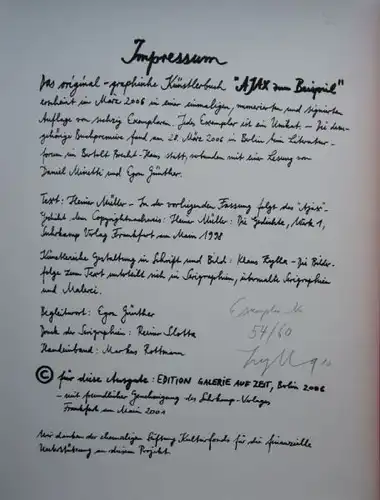 Impressum
Das original-graphische Künstlerbuch "AJAX zum Beispiel"
erscheint im März 2006 in einer einmaligen, nummerierten und signierten
Auflage von sechzig Exemplaren. Jedes Exemplar ist ein Unikat. – Die dazu-
gehörige Buchpremiere fand am 28. März 2006 in Berlin im Literatur-
forum im Bertolt Brecht-Haus statt, verbunden mit einer Lesung von
Daniel Minetti und Egon Günther.
Text: Heiner Müller – In der vorliegenden Fassung folgt das "Ajax"-
Gedicht dem Copyrightnachweis: Heiner Müller: Die Gedichte, Werk 1,
Suhrkamp Verlag Frankfurt am Main 1998
Künstlerische Gestaltung in Schrift und Bild: Klaus Zylla – Die Bilder-
folge zum Text unterteilt sich in Serigraphien, übermalte Serigraphien
und Malerei.
Begleitwort: Egon Günther
Druck der Serigraphien: Reiner Slotta
Handeinband: Markus Rottmann
Exemplar Nr
54/60
Zylla
© für diese Ausgabe: EDITION GALERIE AUF ZEIT, Berlin 2006
– mit freundlicher Genehmigung des Suhrkamp-Verlages
Frankfurt am Main
Wir danken der ehemaligen Stiftung Kulturfonds für die finanzielle
Unterstützung an diesem Projekt.